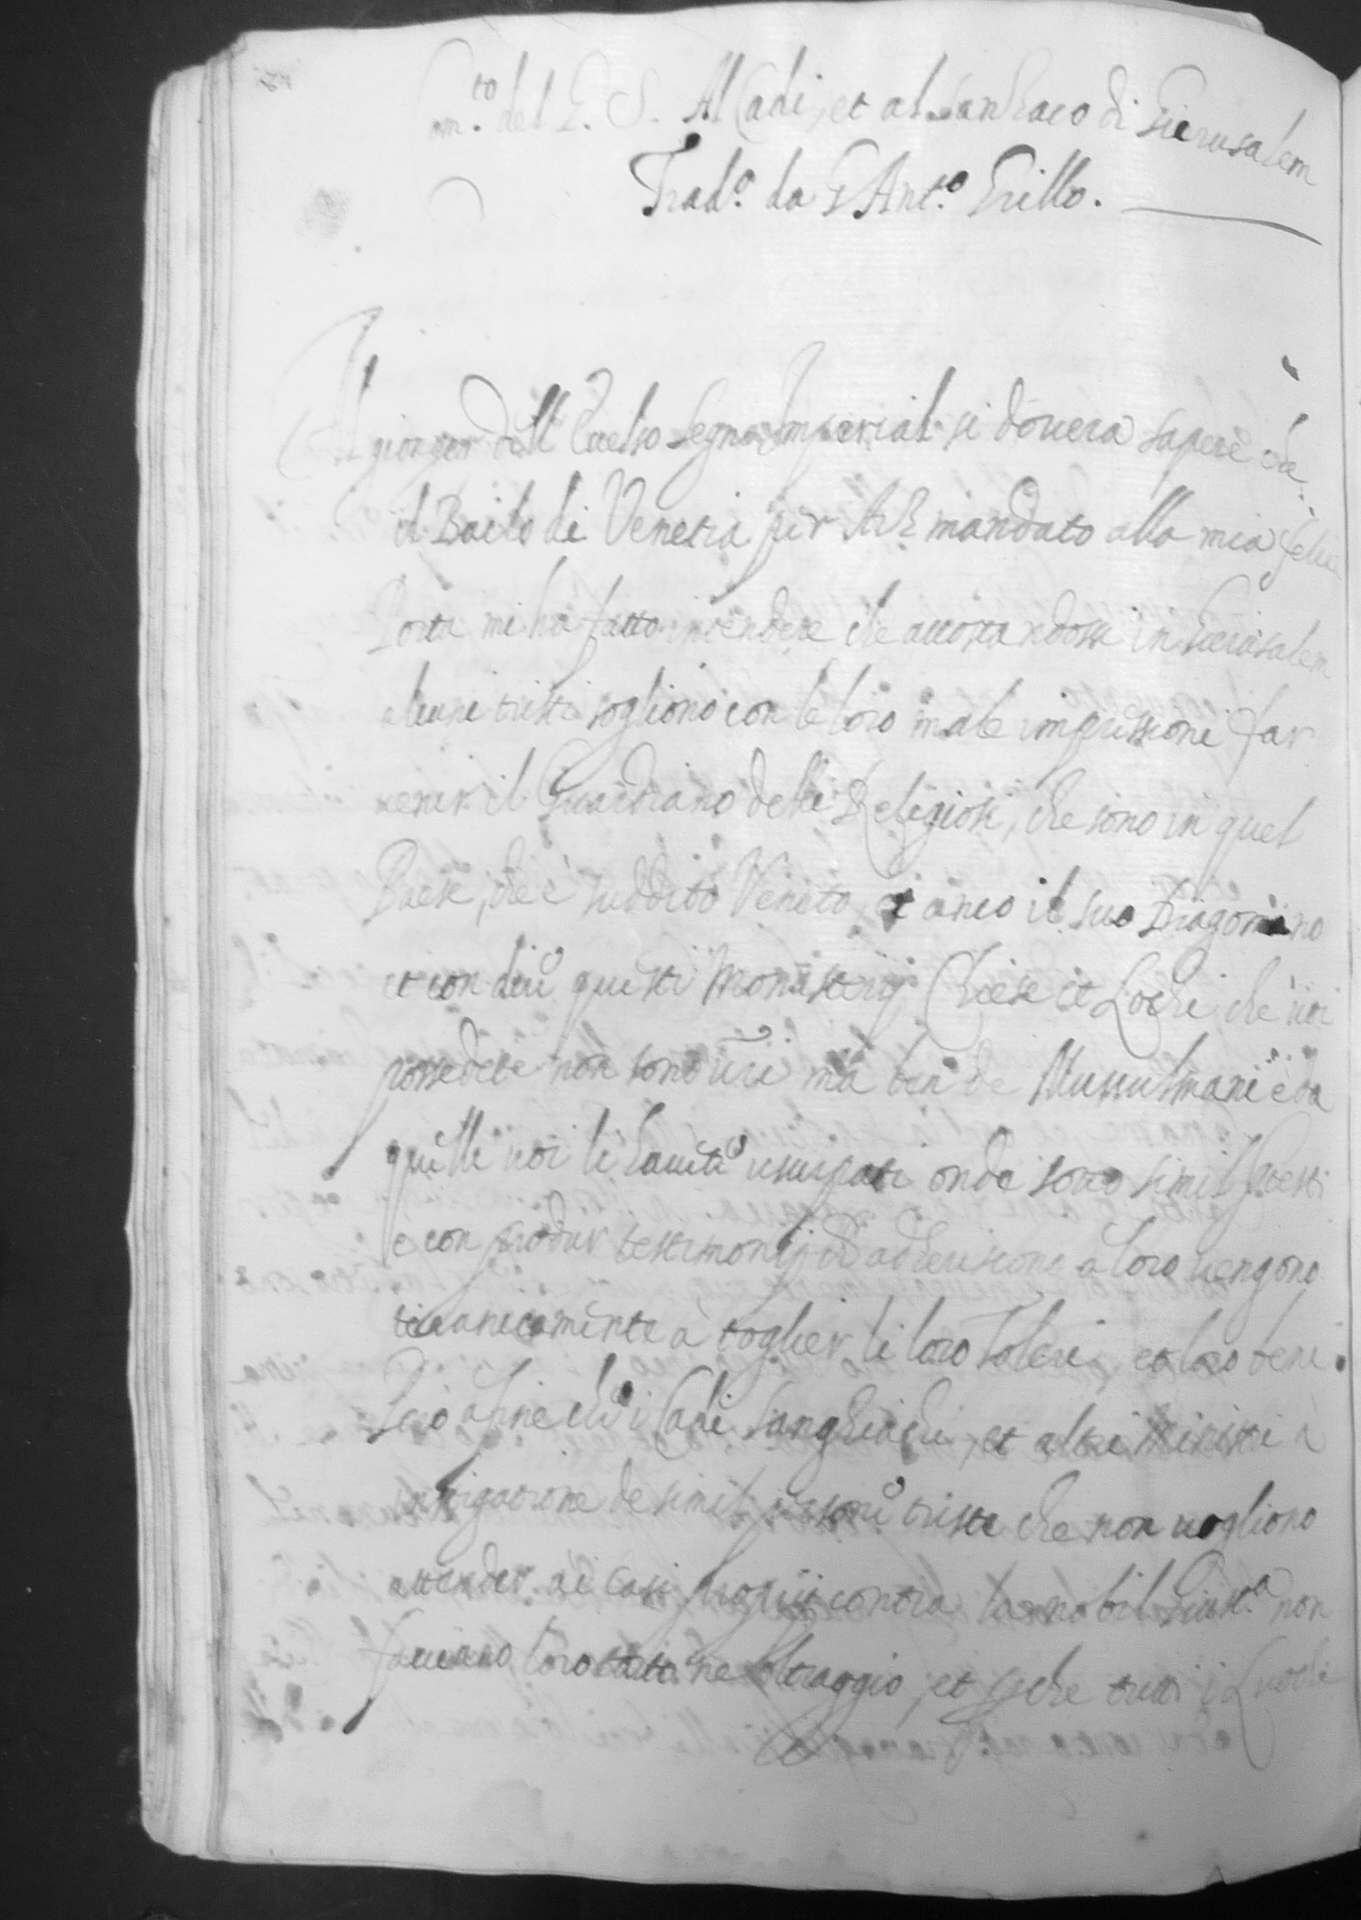 Com.to del G. S. Al Cadi, et al Sanzaco di Gierusalem
Trad.o da G Ant.o Grillo.
Al gionger dell' Eccelso Segno Imperial si dovera sapere che
il Bailo di Venetia per Arz mandato alla mia felice
Porta mi ha fatto intendere che accostandosi in Gierusalem
alcuni tristi sogliono con le loro male impressioni far
venir il Guardiano delli Religiosi, che sono in quel
Paese, che è suddito Veneto, et anco il suo Dragomano
et con dire questi Monasterij Chiese et Lochi che voi
possedete non sono v̅r̅i ma ben de Mussulmani è da
quelli voi li havete usurpati onde sotto simil pretesti
e con produr testimonij ch' adheriscono a loro vengono
tiranicamente à toglier li loro Toleri, e loro beni.
Però afine che i Cadi Sanghiachi, et altri Ministri à
instigatione de simil persone triste che non vogliono
attender ai casi proprij contra la nobil Giust.a non
facciano loro torto ne oltraggio, et che tutti i Luochi